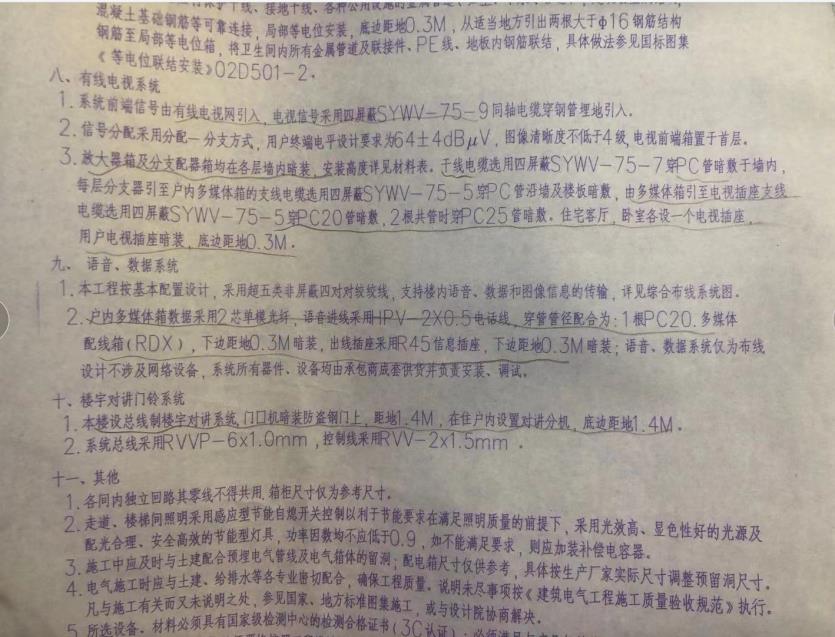 混凝土基础钢筋等可靠连接，局部等电位安装，底边距地0.3M，从适当地方引出两根大于Φ16钢筋结构
钢筋至局部等电位箱，将卫生间内所有金属管道及联接件、PE线、地板内钢筋联结，具体做法参见国标图集
《等电位联结安装》02D501-2。
八、有线电视系统
1.系统前端信号由有线电视网引入，电视信号采用四屏蔽SYWV-75-9同轴电缆穿钢管埋地引入。
2.信号分配采用分配一分支方式，用户终端电平设计要求为64±4dBμV，图像清晰度不低于4级，电视前端箱置于首层。
3.放大器箱及分支配器箱均在各层墙内暗装，安装高度详见材料表。干线电缆选用四屏蔽SYWV-75-7穿PC管暗敷于墙内，
每层分支器引至户内多媒体箱的支线电缆选用四屏蔽SYWV-75-5穿PC管沿墙及楼板暗敷，由多媒体箱引至电视插座支线
电缆选用四屏蔽SYWV-75-5穿PC20管暗敷，2根共管时穿PC25管暗敷。住宅客厅，卧室各设一个电视插座，
用户电视插座暗装，底边距地0.3M。
九、语音、数据系统
1.本工程按基本配置设计，采用超五类非屏蔽四对对绞绞线，支持楼内语音、数据和图像信息的传输，详见综合布线系统图。
2.户内多媒体箱数据采用2芯单模光纤，语音进线采用HPV-2X0.5电话线，穿管管径配合为：1根PC20.多媒体
配线箱（RDX），下边距地0.3M暗装，出线插座采用R45信息插座，下边距地0.3M暗装；语音、数据系统仅为布线
设计不涉及网络设备，系统所有器件、设备均由承包商成套供货并负责安装、调试。
十、楼宇对讲门铃系统
1.本楼设总线制楼宇对讲系统，门口机暗装防盗钢门上，距地1.4M，在住户内设置对讲分机，底边距地1.4M。
2.系统总线采用RVVP-6x1.0mm，控制线采用RVV-2x1.5mm。
十一、其他
1.各间内独立回路其零线不得共用.箱柜尺寸仅为参考尺寸。
2.走道、楼梯间照明采用感应型节能自熄开关控制以利于节能要求在满足照明质量的前提下，采用光效高、显色性好的光源及
配光合理、安全高效的节能型灯具，功率因数均不应低于0.9，如不能满足要求，则应加装补偿电容器。
3.施工中应及时与土建配合预埋电气管线及电气箱体的留洞；配电箱尺寸仅供参考，具体按生产厂家实际尺寸调整预留洞尺寸。
4.电气施工时应与土建、给排水等各专业密切配合，确保工程质量。说明未尽事项按《建筑电气工程施工质量验收规范》执行。
凡与施工有关而又未说明之处，参见国家、地方标准图集施工，或与设计院协商解决。
5.所选设备、材料必须具有国家级检测中心的检测合格证书（3C认证）；必须满足与产品